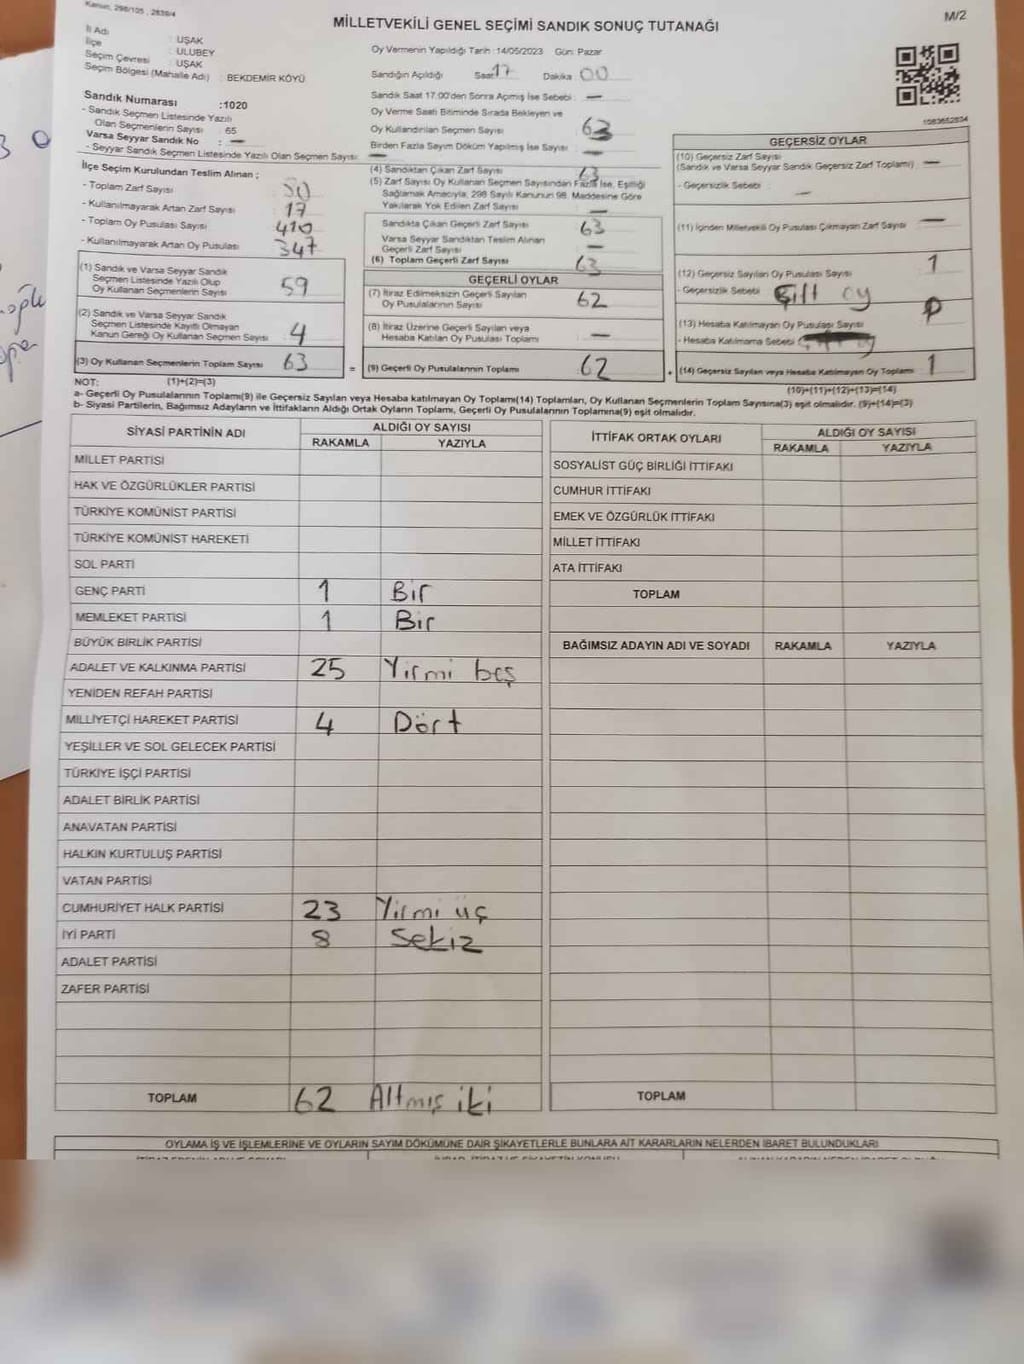 Kanun, 298/105 , 2839/4
M/2
MİLLETVEKİLİ GENEL SEÇİMİ SANDIK SONUÇ TUTANAĞI
İl Adı : UŞAK
İlçe : ULUBEY
Seçim Çevresi : UŞAK
Seçim Bölgesi (Mahalle Adı) : BEKDEMİR KÖYÜ
Oy Vermenin Yapıldığı Tarih :14/05/2023 Gün: Pazar
Sandığın Açıldığı Saat 17 Dakika 00
Sandık Saat 17:00'den Sonra Açımış İse Sebebi : —
Oy Verme Saati Bitiminde Sırada Bekleyen ve
Oy Kullandırılan Seçmen Sayısı : 63
Birden Fazla Sayım Döküm Yapılmış İse Sayısı : —
1083652834
Sandık Numarası :1020
- Sandık Seçmen Listesinde Yazılı
Olan Seçmenlerin Sayısı : 65
Varsa Seyyar Sandık No : —
- Seyyar Sandık Seçmen Listesinde Yazılı Olan Seçmen Sayısı: —
İlçe Seçim Kurulundan Teslim Alınan ;
- Toplam Zarf Sayısı :
- Kullanılmayarak Artan Zarf Sayısı : 17
- Toplam Oy Pusulası Sayısı : 410
- Kullanılmayarak Artan Oy Pusulası : 347
(1) Sandık ve Varsa Seyyar Sandık
Seçmen Listesinde Yazılı Olup
Oy Kullanan Seçmenlerin Sayısı : 59
(2) Sandık ve Varsa Seyyar Sandık
Seçmen Listesinde Kayıtlı Olmayan
Kanun Gereği Oy Kullanan Seçmen Sayısı : 4
(3) Oy Kullanan Seçmenlerin Toplam Sayısı : 63
(4) Sandıktan Çıkan Zarf Sayısı : 63
(5) Zarf Sayısı Oy Kullanan Seçmen Sayısından Fazla İse, Eşitliği
Sağlamak Amacıyla, 298 Sayılı Kanunun 98. Maddesine Göre
Yakılarak Yok Edilen Zarf Sayısı : —
Sandıkta Çıkan Geçerli Zarf Sayısı : 63
Varsa Seyyar Sandıktan Teslim Alınan
Geçerli Zarf Sayısı : —
(6) Toplam Geçerli Zarf Sayısı : 63
GEÇERLİ OYLAR
(7) İtiraz Edilmeksizin Geçerli Sayılan
Oy Pusulalarının Sayısı : 62
(8) İtiraz Üzerine Geçerli Sayılan veya
Hesaba Katılan Oy Pusulası Toplamı : —
= (9) Geçerli Oy Pusulalarının Toplamı : 62
GEÇERSİZ OYLAR
(10) Geçersiz Zarf Sayısı
(Sandık ve Varsa Seyyar Sandık Geçersiz Zarf Toplamı) : —
- Geçersizlik Sebebi : —
(11) İçinden Milletvekili Oy Pusulası Çıkmayan Zarf Sayısı : —
(12) Geçersiz Sayılan Oy Pusulası Sayısı : 1
- Geçersizlik Sebebi : Çift oy
(13) Hesaba Katılmayan Oy Pusulası Sayısı :
- Hesaba Katılmama Sebebi :
+ (14) Geçersiz Sayılan veya Hesaba Katılmayan Oy Toplamı : 1
NOT: (1)+(2)=(3)
(10)+(11)+(12)+(13)=(14)
a- Geçerli Oy Pusulasının Toplamı(9) ile Geçersiz Sayılan veya Hesaba katılmayan Oy Toplamı(14) Toplamları, Oy Kullanan Seçmenlerin Toplam Sayısına(3) eşit olmalıdır. (9)+(14)=(3)
b- Siyasi Partilerin, Bağımsız Adayların ve İttifakların Aldığı Ortak Oyların Toplamı, Geçerli Oy Pusulalarının Toplamına(9) eşit olmalıdır.
SİYASİ PARTİNİN ADI
ALDIĞI OY SAYISI
RAKAMLA YAZIYLA
MİLLET PARTİSİ
HAK VE ÖZGÜRLÜKLER PARTİSİ
TÜRKİYE KOMÜNİST PARTİSİ
TÜRKİYE KOMÜNİST HAREKETİ
SOL PARTİ
GENÇ PARTİ 1 Bir
MEMLEKET PARTİSİ 1 Bir
BÜYÜK BİRLİK PARTİSİ
ADALET VE KALKINMA PARTİSİ 25 Yirmi beş
YENİDEN REFAH PARTİSİ
MİLLİYETÇİ HAREKET PARTİSİ 4 Dört
YEŞİLLER VE SOL GELECEK PARTİSİ
TÜRKİYE İŞÇİ PARTİSİ
ADALET BİRLİK PARTİSİ
ANAVATAN PARTİSİ
HALKIN KURTULUŞ PARTİSİ
VATAN PARTİSİ
CUMHURİYET HALK PARTİSİ 23 Yirmi üç
İYİ PARTİ 8 Sekiz
ADALET PARTİSİ
ZAFER PARTİSİ
TOPLAM 62 Altmış iki
İTTİFAK ORTAK OYLARI
ALDIĞI OY SAYISI
RAKAMLA YAZIYLA
SOSYALİST GÜÇ BİRLİĞİ İTTİFAKI
CUMHUR İTTİFAKI
EMEK VE ÖZGÜRLÜK İTTİFAKI
MİLLET İTTİFAKI
ATA İTTİFAKI
TOPLAM
BAĞIMSIZ ADAYIN ADI VE SOYADI RAKAMLA YAZIYLA
TOPLAM
OYLAMA İŞ VE İŞLEMLERİNE VE OYLARIN SAYIM DÖKÜMÜNE DAİR ŞİKAYETLERLE BUNLARA AİT KARARLARIN NELERDEN İBARET BULUNDUKLARI